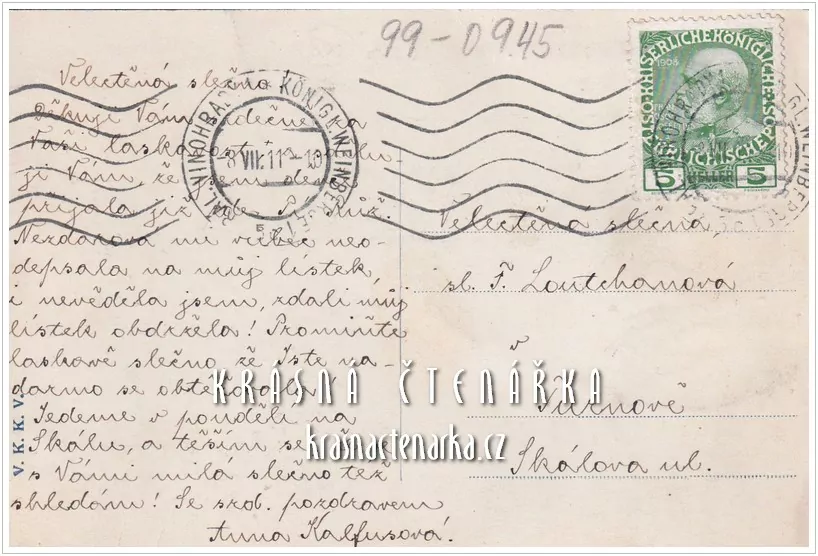 99-0945
Velectěná slečno
Děkuji Vám srdečně za
Vaši laskavost a
ji Vám, že jsem
přijala již
Nezdarova mi vůbec neo-
depsala na můj lístek
i nevěděla jsem, zdali můj
lístek obdržela! Promiňte
laskavě slečno že Jste na-
darmo se obtěžovala.
Jedeme v pondělí na
Skálu, a těším se, že
s Vámi milá slečno též
shledám! Se srd. pozdravem
Anna Kalfusová.
V. K. K. V.
KRÁL. VINOHRADY KÖNIGL. WEINBERGE
8 VII. 11
KAISERLICHE KÖNIGLICHE ÖSTERREICHISCHE POST
1908
5 HELLER 5
Velectěná slečna
sl. F. Loutchanová
v
Turnově
Skálova ul.
KRÁSNÁ ČTENÁŘKA
krasnactenarka.cz